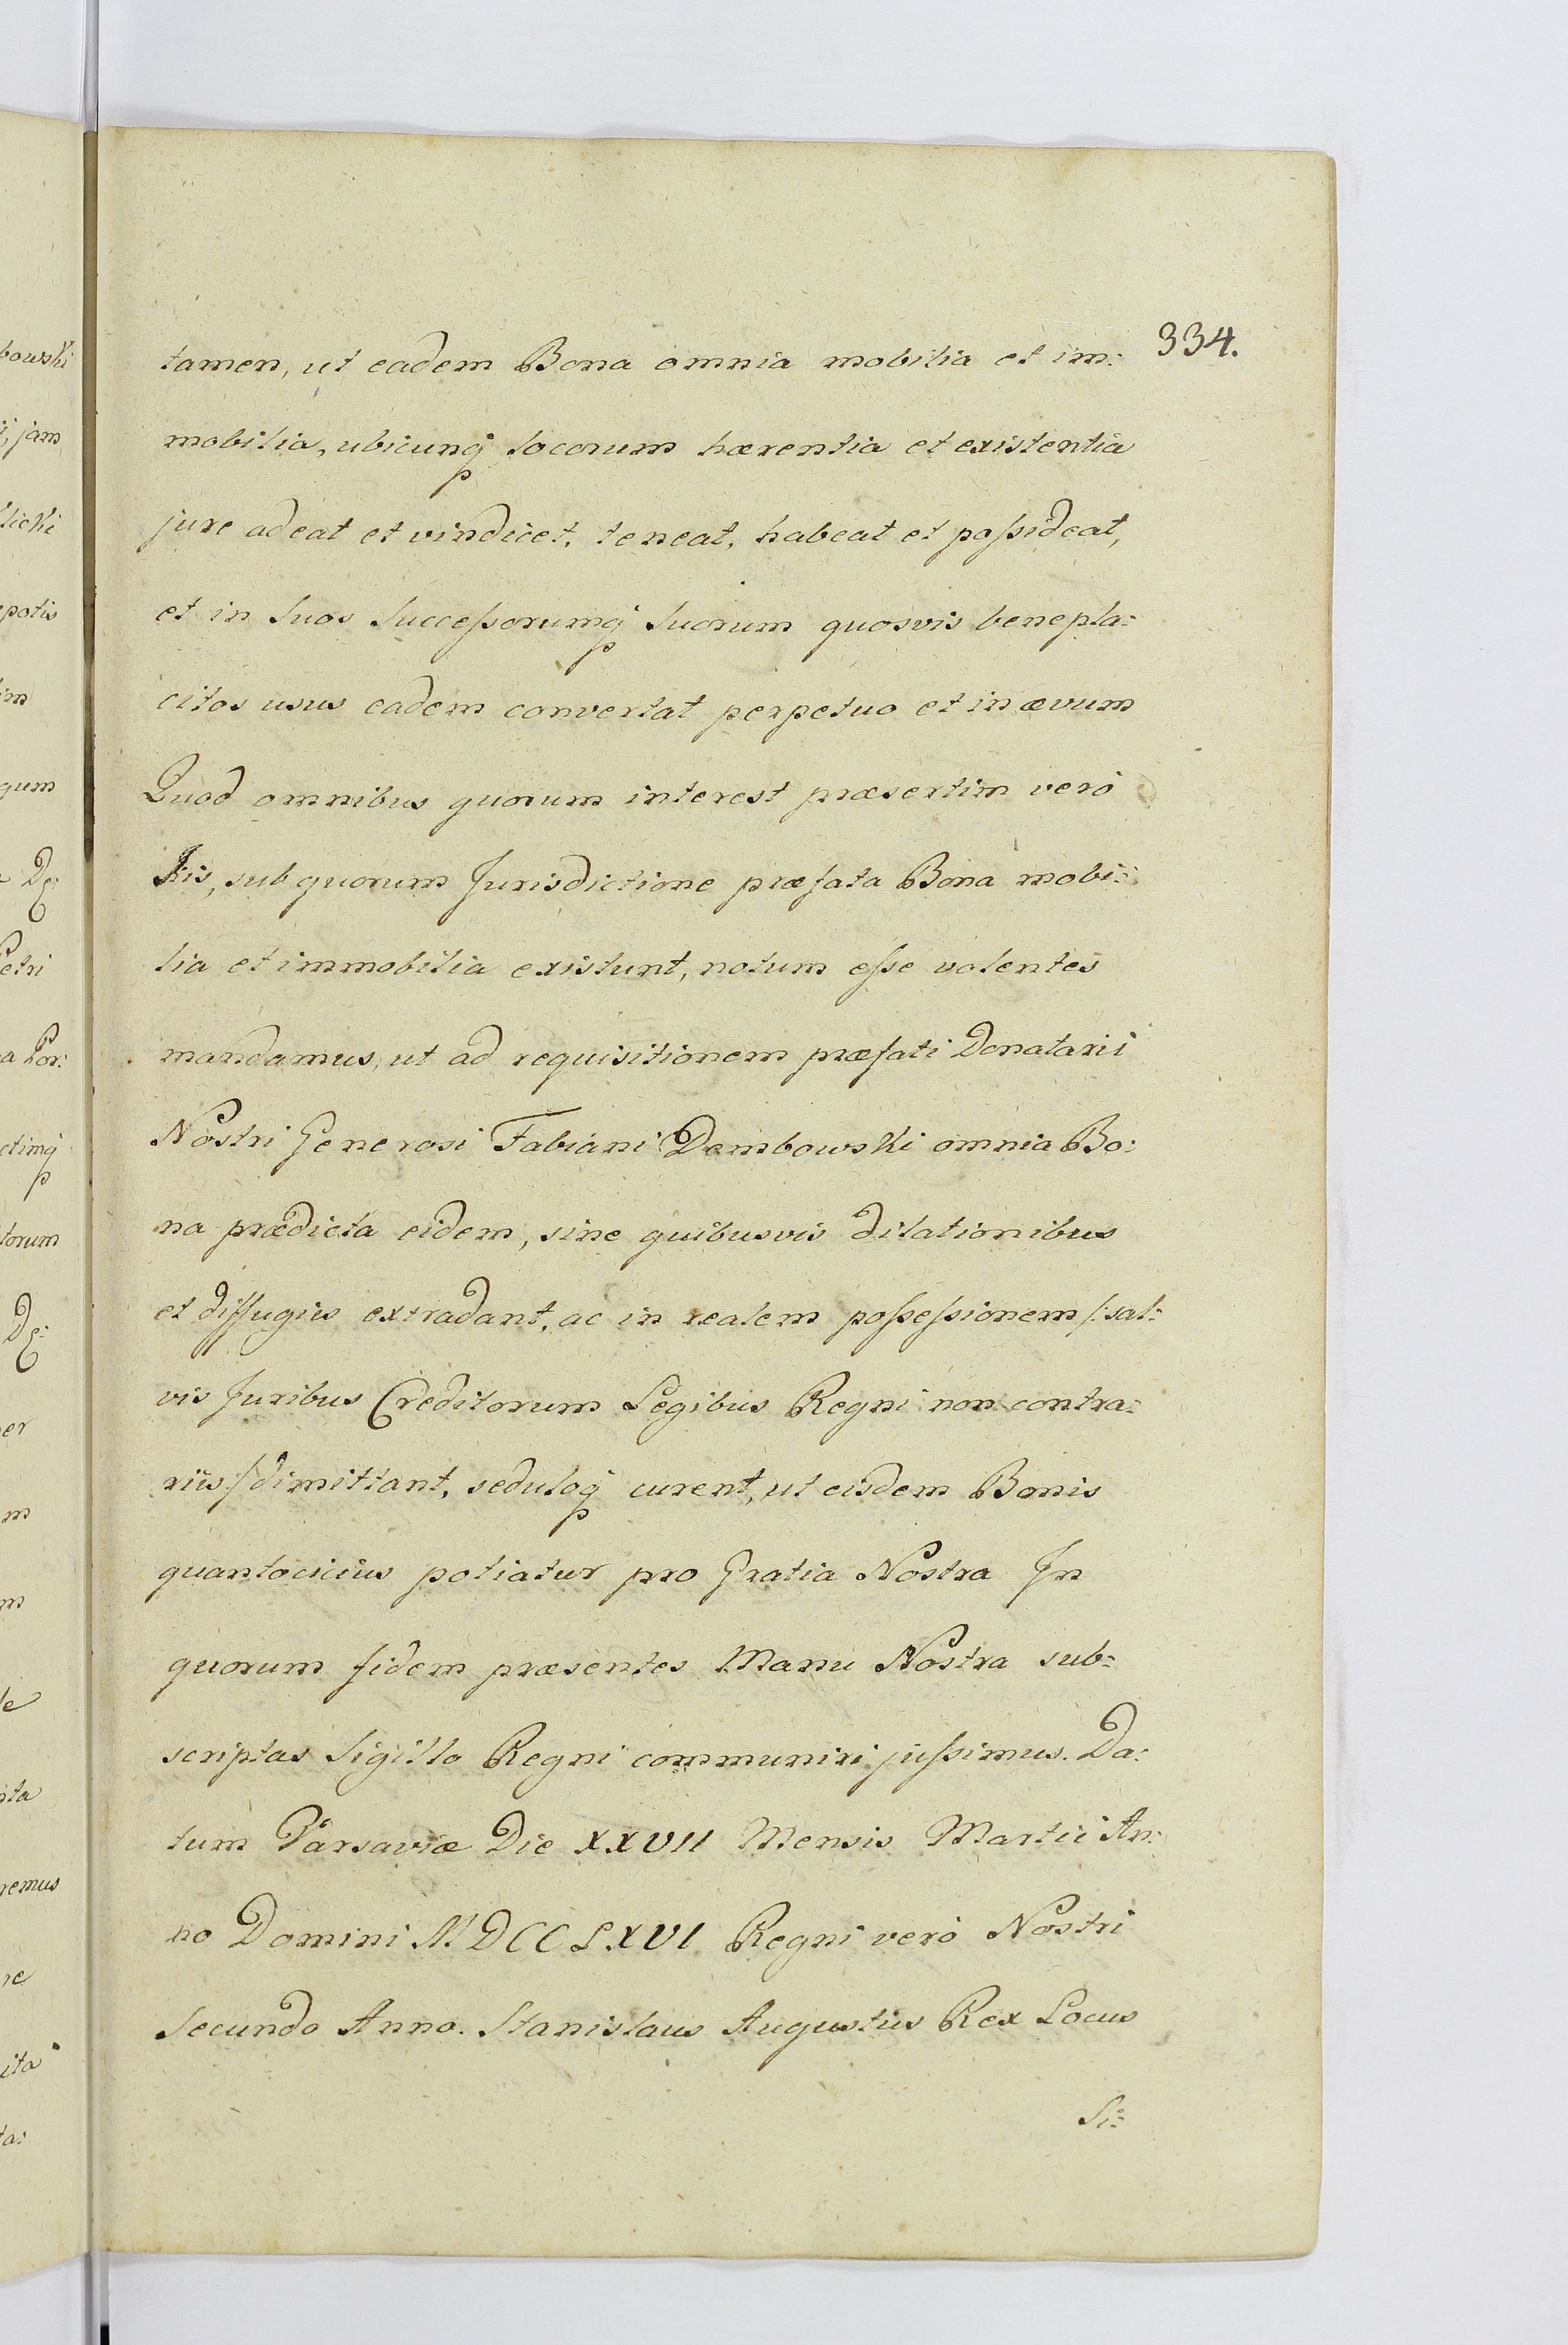 334.
tamen, ut eadem Bona omnia mobilia et im:
mobilia, ubicunq́ locorum hærentia et existentia
jure adeat et vindicet, teneat, habeat et poſsideat,
et in suos Succeſsorumq́ suorum quosvis benepla:
citos usus eadem convertat perpetuo et in ævum
Quod omnibus quorum interest præsertim verò
Iis, sub quorum Jurisdictione præfata Bona mobi:
lia et immobilia existunt, notum eſse volentes
mandamus, ut ad requisitionem præfati Donatarii
Nostri Generosi Fabiani Dembowski omnia Bo:
na prædicta eidem, sine quibusvis dilationibus
et diffugiis extradant, ac in realem poſseſsionem /: sal:
vis Juribus Creditorum Legibus Regni non contra:
riis :/ dimittant, seduloq́ curent, ut eisdem Bonis
quantocicius potiatur pro Gratia Nostra In
quorum fidem præsentes Manu Nostra sub:
scriptas Sigillo Regni communiri juſsimus. Da:
tum Varsaviæ Die XXVII Mensis Martii An:
no Domini MDCCLXVI Regni verò Nostri
Secundo Anno. Stanislaus Augustus Rex Locus
Si:
bowski
jam
licki
epotis
im
gum
Petri
a Por:
ctimq́
torum
er
m
m
le
nta
remus
re
ita
ta: